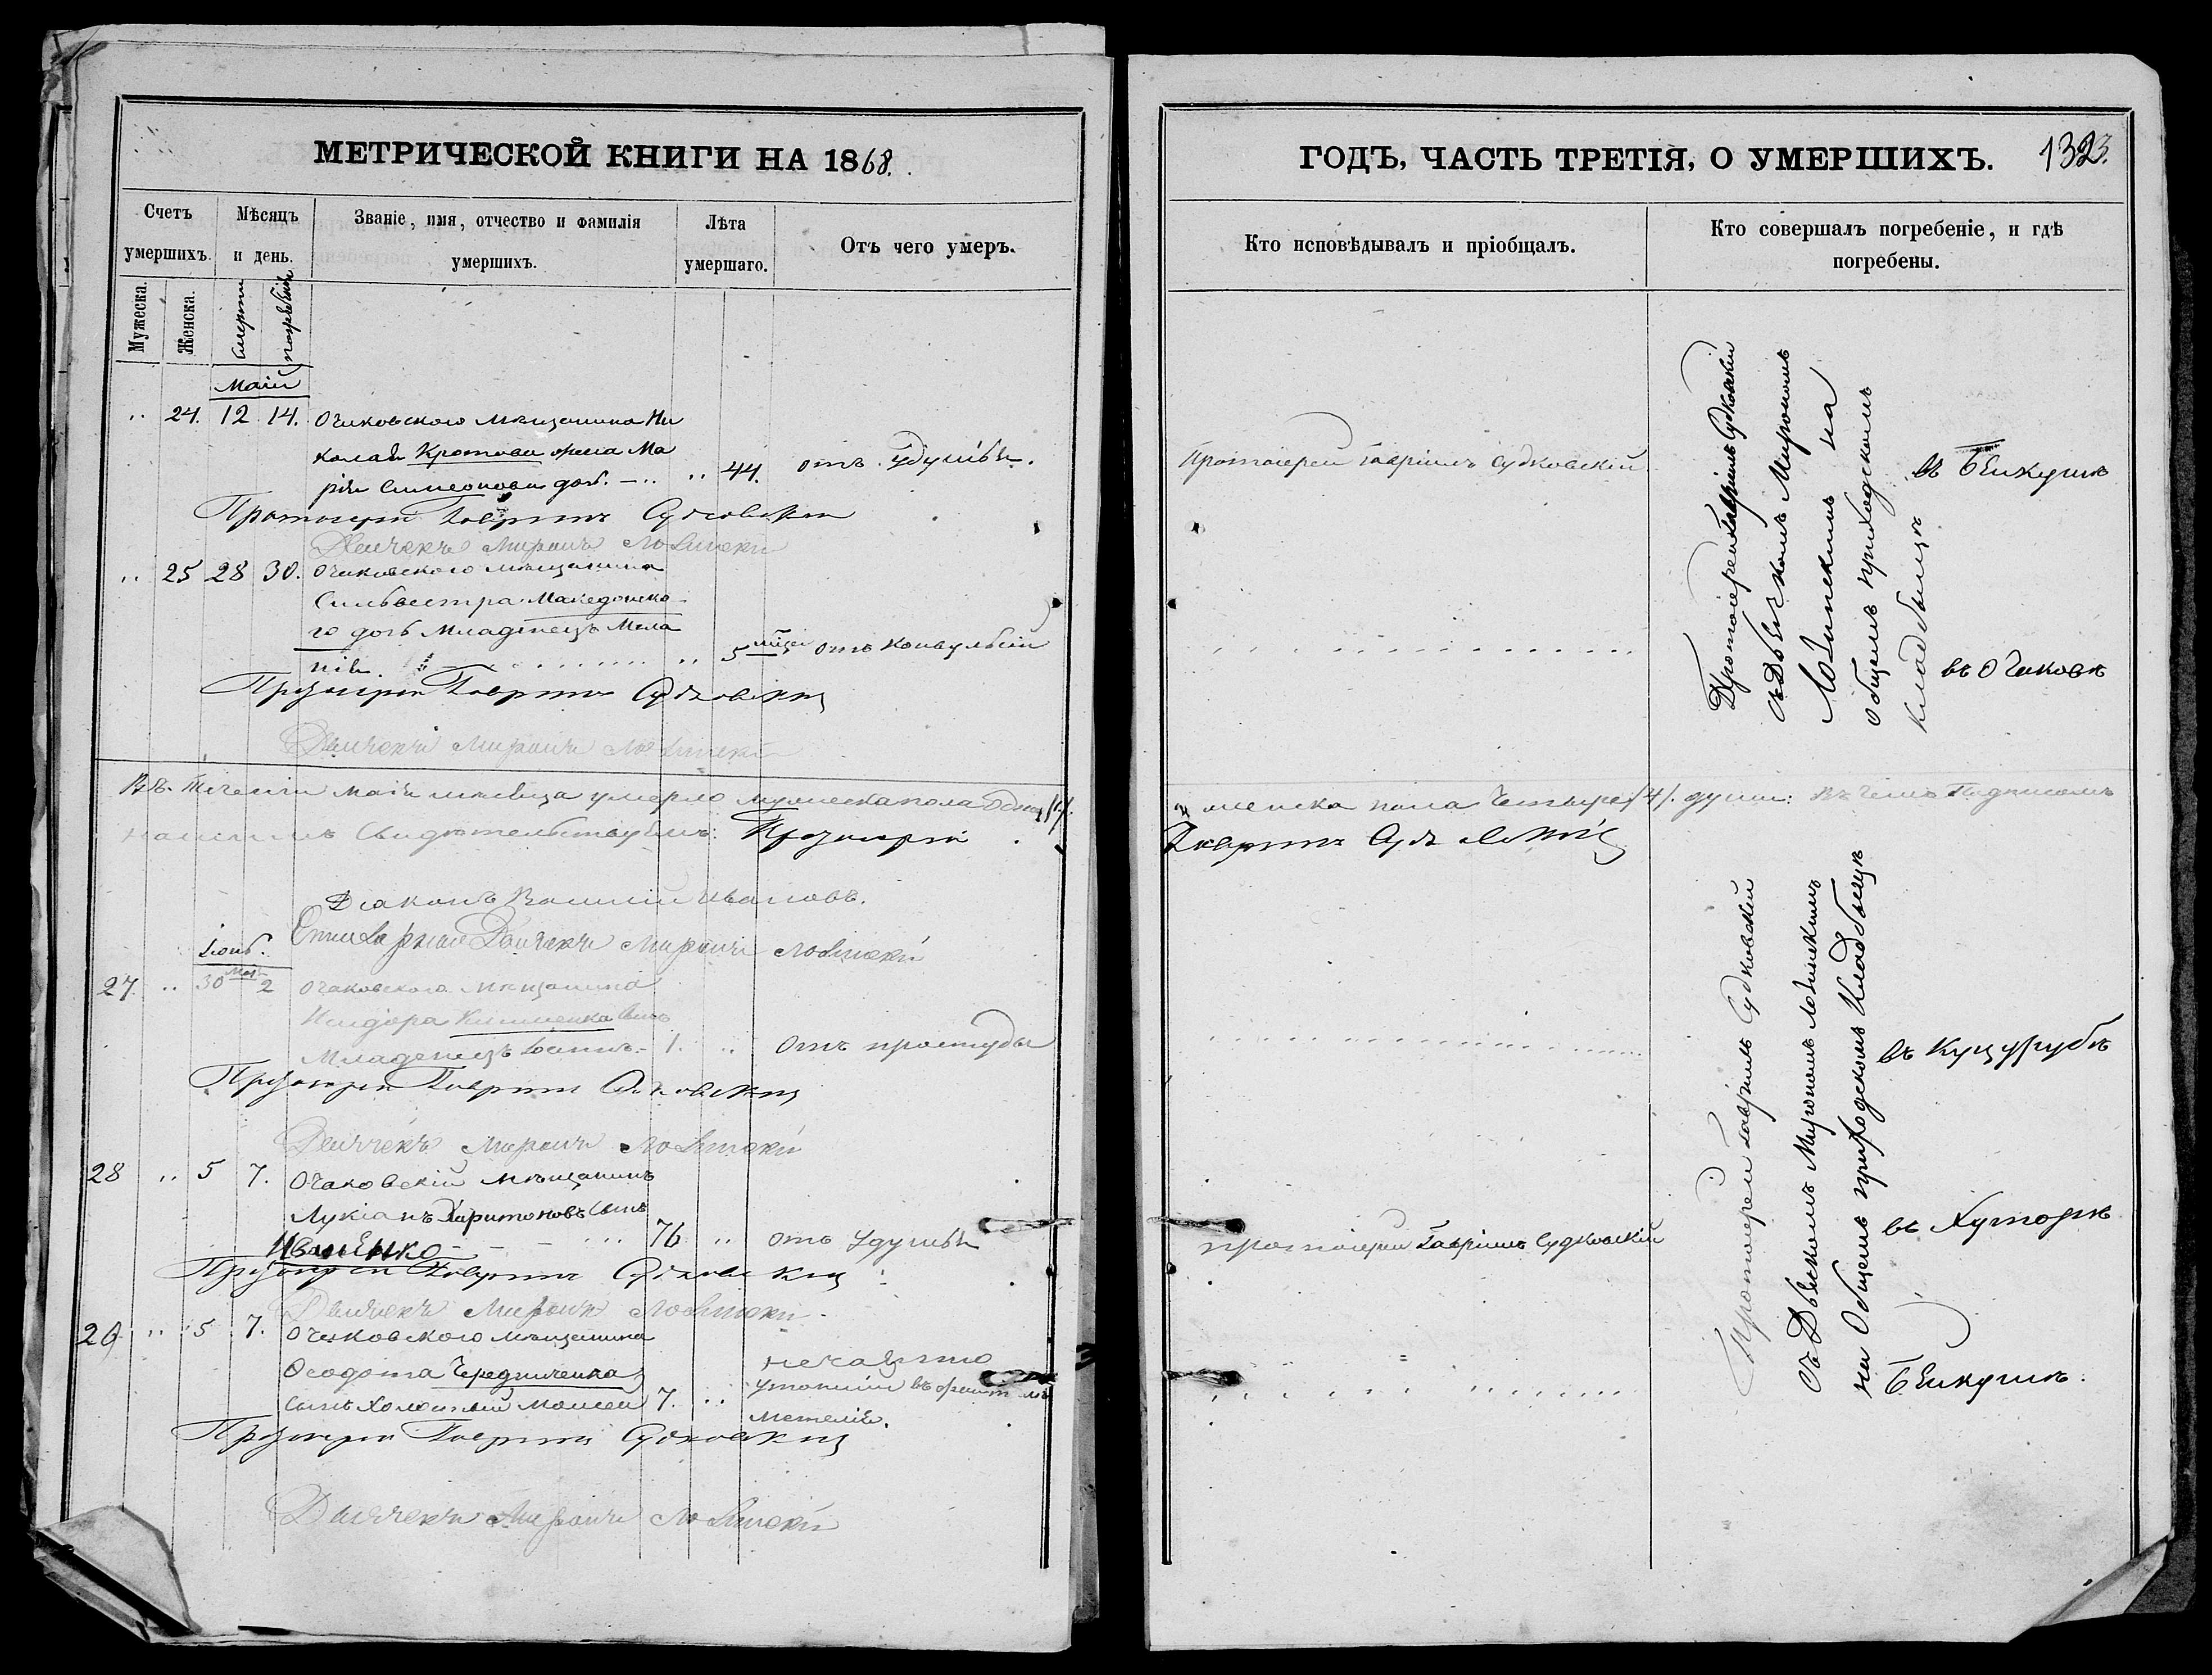 МЕТРИЧЕСКОЙ КНИГИ НА 1868.
Счетъ умершихъ.
Мѣсяцъ и день.
Званіе, имя, отчество и фамилія умершихъ.
Лѣта умершаго.
Отъ чего умеръ.
Мужеска.
Женска.
смерти
погребенія
Маій
„ 24. 12 14. Очаковского мѣщанина Ни
колая Кротова жена Ма
рія Симеонова доч. „ 44. отъ удушья.
Протоіерей Гавріилъ Судковскій
Дьячекъ Миронъ Лобинскій
„ 25 28 30. Очаковского мѣщанина
Сильвестра Македонско
го дочь младенецъ Мела
нія. „ 5 мѣсц. отъ конвульсій
Протоіерей Гавріилъ Судковскій
Дьячекъ Миронъ Лобинскій
Въ теченіи Маія мѣсяца умерло мужеска пола одна /1/.
нашимъ свидѣтельствуемъ: Протоіерей
Діаконъ Василій Ивановъ.
Дьячекъ Миронъ Лобинскій
Іюнь.
27 „ 30 Маія 2 Очаковского мѣщанина
Исидора сынъ
младенецъ Іоаннъ. 1. „ отъ простуды
Протоіерей Гавріилъ Судковскій
Дьячекъ Миронъ Лобинскій
28 „ 5 7. Очаковскій мѣщанинъ
Лукіанъ Харитоновъ сынъ
Иваненко 76 „ отъ удушья
Протоіерей Гавріилъ Судковскій
Дьячекъ Миронъ Лобинскій
29 „ 5 7. Очаковского мѣщанина
Ѳеодота Чередниченка
сынъ холостый Моисей 7. „ нечаянно
утопшій въ
Протоіерей Гавріилъ Судковскій
Дьячекъ Миронъ Лобинскій
ГОДЪ, ЧАСТЬ ТРЕТІЯ, О УМЕРШИХЪ. 1323.
Кто исповѣдывалъ и пріобщалъ.
Кто совершалъ погребеніе, и гдѣ погребены.
Протоіерей Гавріилъ Судковскій
Протоіерей Гавріилъ Судковскій
съ Дьячкомъ Мирономъ
Лобинскимъ на
общемъ приходскомъ
кладбищѣ
въ Бейкушѣ
въ Очаковѣ
женска пола четыре /4/. души: въ чемъ подписомъ
Гавріилъ Судковскій
Протоіерей Гавріилъ Судковскій
съ Дьячкомъ Мирономъ Лобинскимъ
на общемъ приходскомъ кладбищѣ
въ Куцурубѣ
протоіерей Гавріилъ Судковскій
въ Хуторѣ
Бейкушѣ.